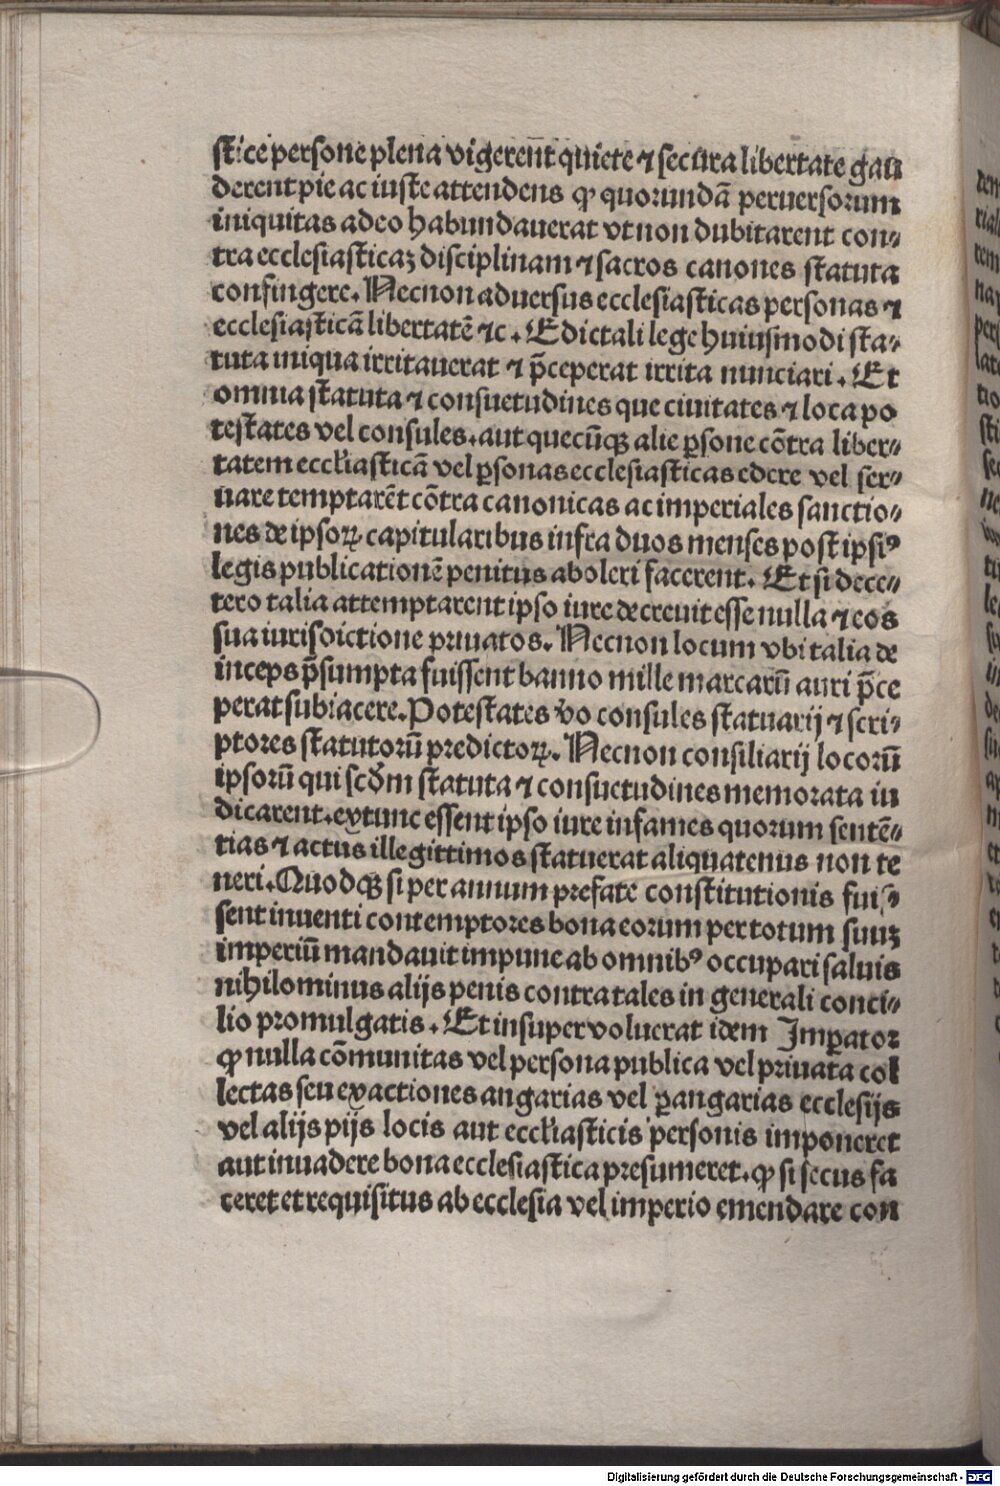 stice persone plena vigerent quiete ⁊ secura libertate gau
derent pie ac iuste attendens ꝙ quorundā peruersorum
iniquitas adeo habundauerat vt non dubitarent con⸗
tra ecclesiasticaꝫ disciplinam ⁊ sacros canones statuta
confingere. Necnon aduersus ecclesiasticas personas ⁊
ecclesiasticā libertatē ⁊c. Edictali lege huiusmodi sta⸗
tuta iniqua irritauerat ⁊ p̄ceperat irrita nunciari. Et
omnia statuta ⁊ consuetudines que ciuitates ⁊ loca po
testates vel consules. aut quecūqꝫ alie ꝑsone cōtra liber⸗
tatem eccl̄iasticā vel ꝑsonas ecclesiasticas edere vel ser⸗
uare temptarēt cōtra canonicas ac imperiales sanctio⸗
nes de ipsoꝝ capitularibus infra duos menses post ipsiꝰ
legis publicationē penitus aboleri facerent. Et si dece⸗
tero talia attemptarent ipso iure decreuit esse nulla ⁊ eos
sua iurisdictione priuatos. Necnon locum vbi talia de
inceps p̄sumpta fuissent banno mille marcarū auri p̄ce
perat subiacere. Potestates v̄o consules statuarij ⁊ scri⸗
ptores statutorū predictoꝝ. Necnon consiliarij locorū
ipsorū qui scd̄m statuta ⁊ consuetudines memorata iu
dicarent. extunc essent ipso iure infames quorum sentē⸗
tias ⁊ actus illegittimos statuerat aliquatenus non te
neri. Quodqꝫ si per annum prefate constitutionis fuis⸗
sent inuenti contemptores bona eorum per totum suuꝫ
imperiū mandauit impune ab omnibꝰ occupari saluis
nihilominus alijs penis contra tales in generali conci⸗
lio promulgatis. Et insuper voluerat idem Imꝑator
ꝙ nulla cōmunitas vel persona publica vel priuata col
lectas seu exactiones angarias vel ꝑangarias ecclesijs
vel alijs pijs locis aut eccl̄iasticis personis imponeret
aut inuadere bona ecclesiastica presumeret. ꝙ si secus fa
ceret et requisitus ab ecclesia vel imperio emendare con
Digitalisierung gefördert durch die Deutsche Forschungsgemeinschaft - DFG